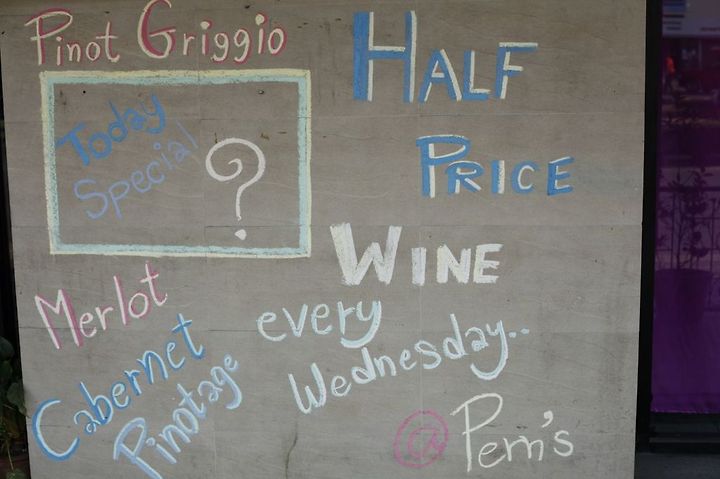 Pinot Griggio
Today
Special
?
Merlot
Cabernet
Pinotage
HALF
PRICE
WINE
every
Wednesday..
@ Pem's